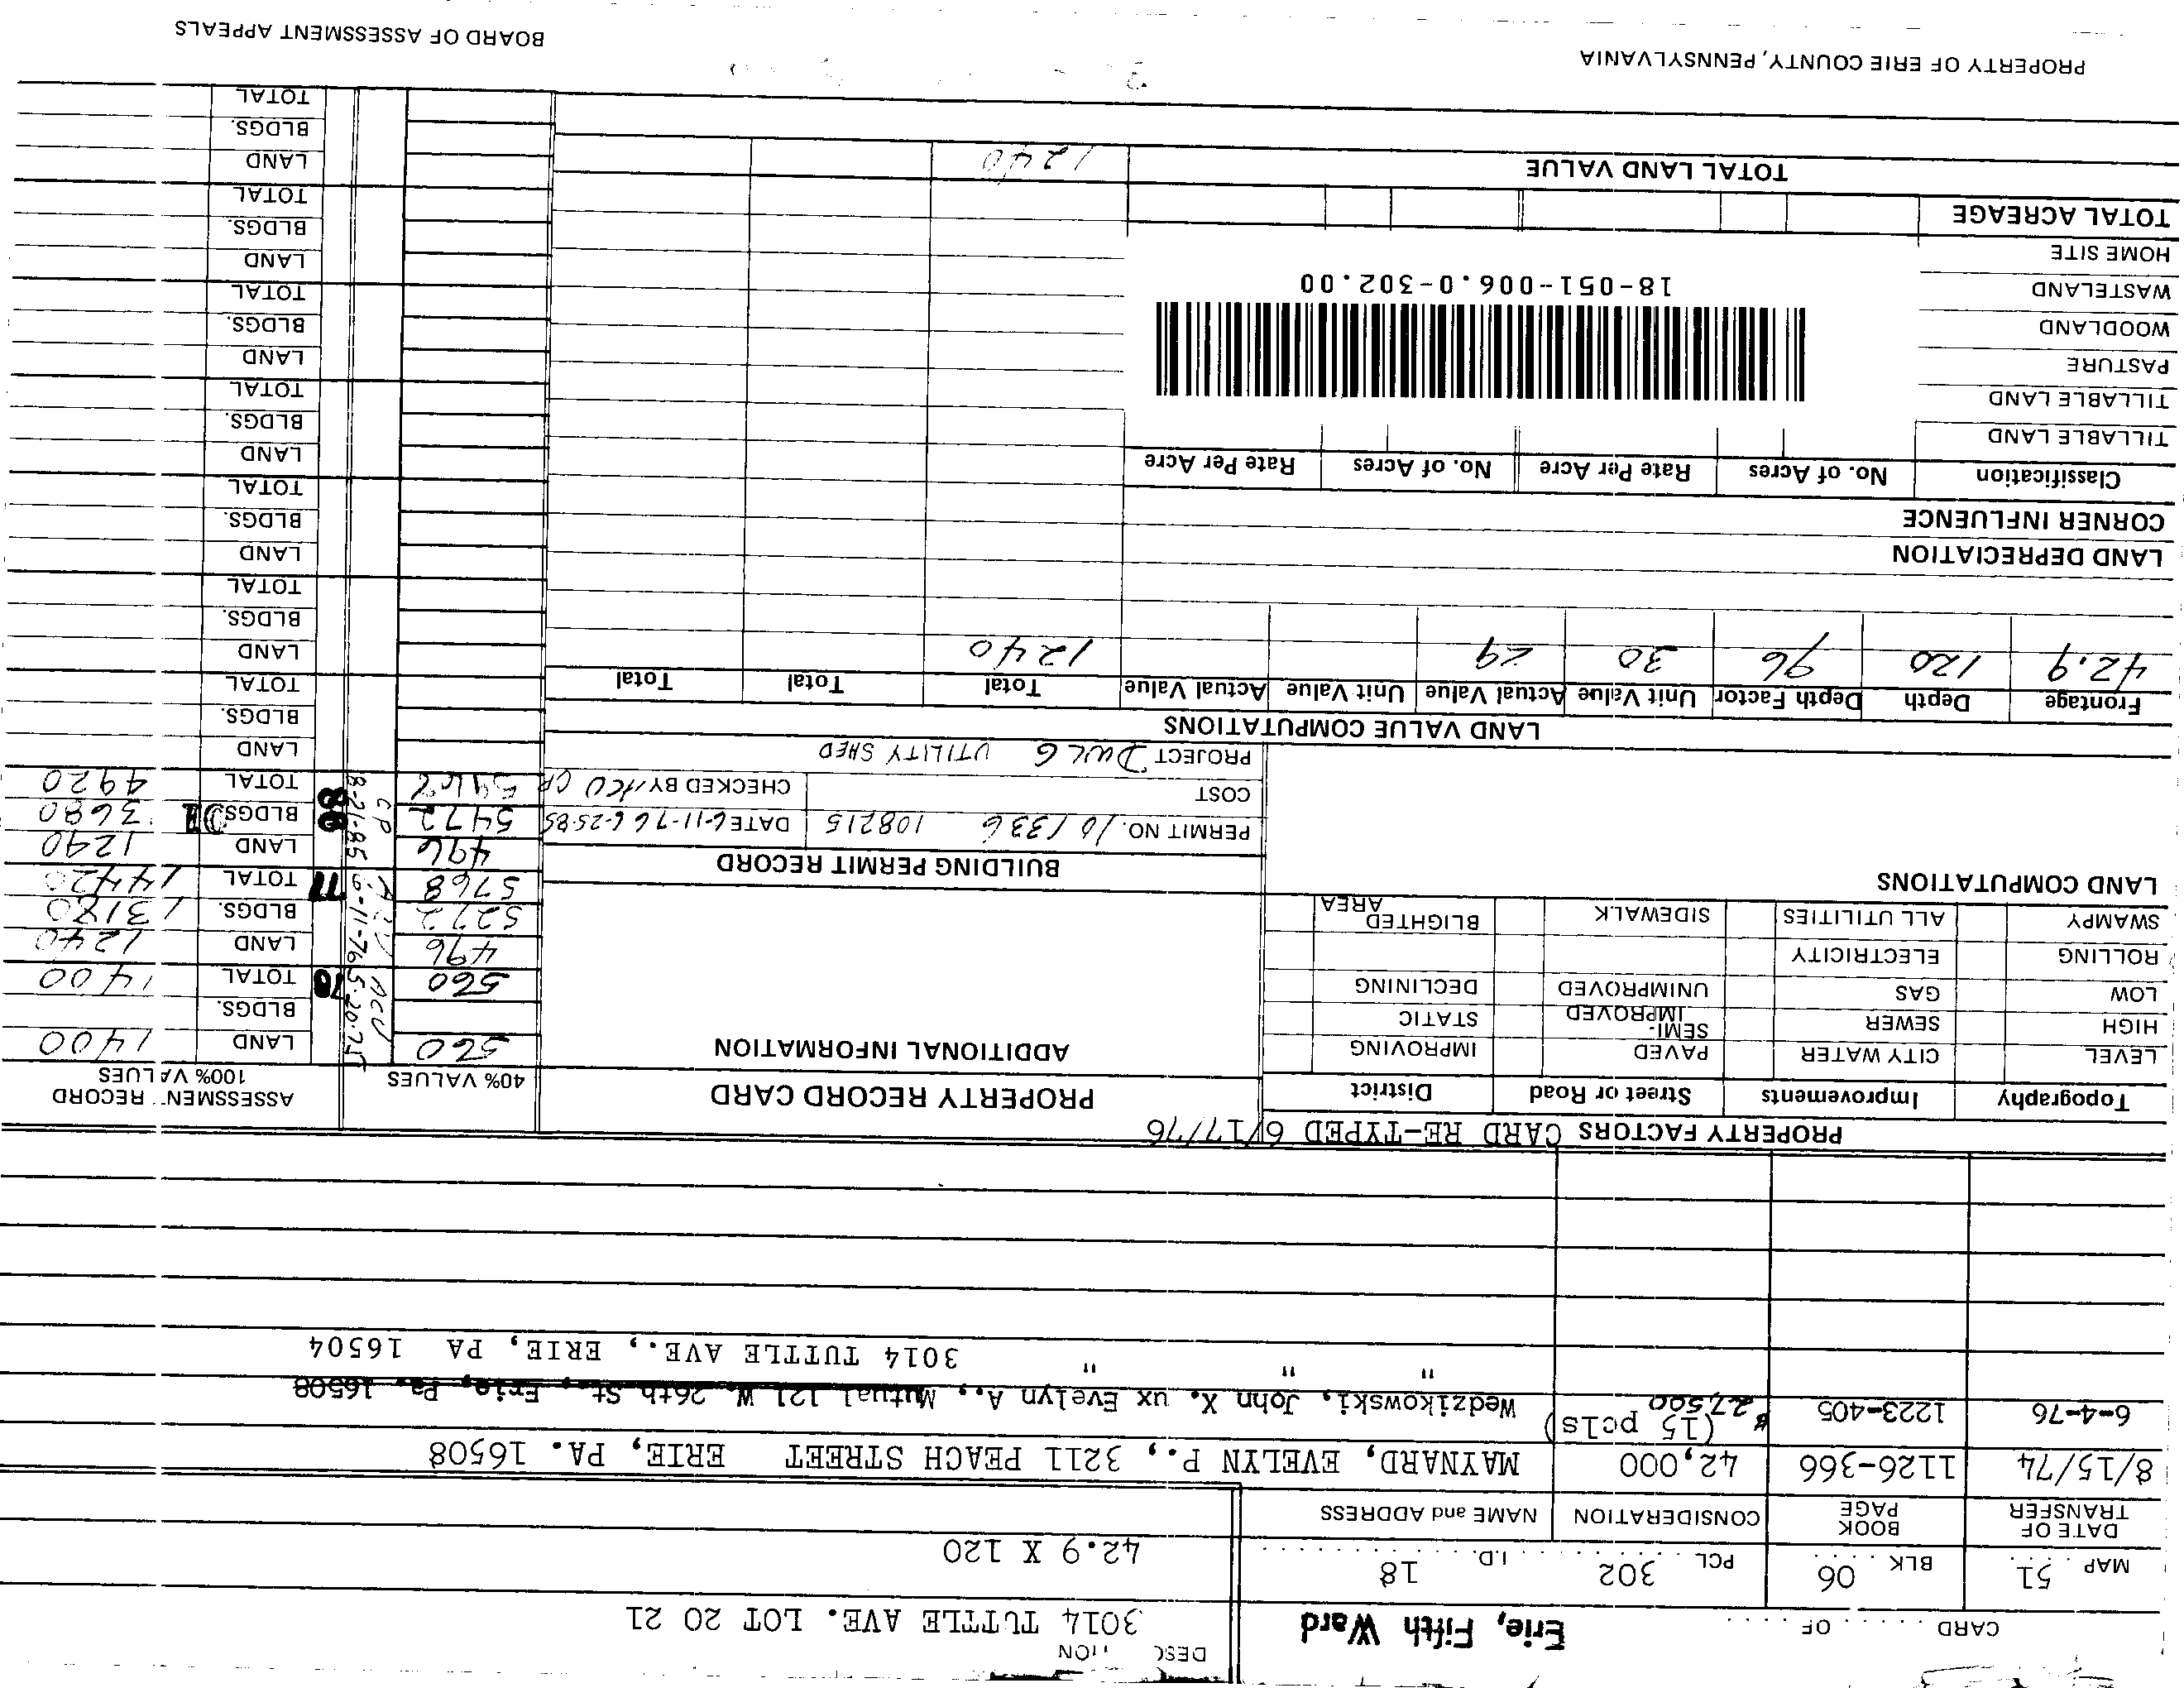 CARD . . . . . OF . . . . .
Erie, Fifth Ward
3014 TUTTLE AVE. LOT 20 21
MAP 51 BLK 06 PCL 302 I.D. 18
42.9 X 120
DATE OF TRANSFER BOOK PAGE CONSIDERATION NAME and ADDRESS
8/15/74 1126-366 42,000 MAYNARD, EVELYN P., 3211 PEACH STREET ERIE, PA. 16508
(15 pcls)
6-4-76 1223-405 27,500 Wedzikowski, John X. ux Evelyn A., Mutual 121 W. 26th St., Erie, Pa. 16508
" " " 3014 TUTTLE AVE., ERIE, PA 16504
PROPERTY FACTORS CARD RE-TYPED 6/17/76
Topography Improvements Street or Road District
LEVEL CITY WATER PAVED IMPROVING
HIGH SEWER SEMI-IMPROVED STATIC
LOW GAS UNIMPROVED DECLINING
ROLLING ELECTRICITY
SWAMPY ALL UTILITIES SIDEWALK BLIGHTED AREA
LAND COMPUTATIONS
PROPERTY RECORD CARD
ADDITIONAL INFORMATION
BUILDING PERMIT RECORD
PERMIT NO. 101336 108215 DATE 6-11-76 6-25-85
COST CHECKED BY ACU CP
PROJECT DWLG UTILITY SHED
40% VALUES ASSESSMENT RECORD 100% VALUES
560 LAND 1400
BLDGS.
560 78 TOTAL 1400
5-20-75 ACU
496 LAND 1240
5272 BLDGS. 13180
5768 77 TOTAL 14420
6-11-76 ACU
496 LAND 1240
5472 BLDGS. 3680
88 TOTAL 4920
8-21-85 CP
LAND
BLDGS.
TOTAL
LAND
BLDGS.
TOTAL
LAND
BLDGS.
TOTAL
LAND
BLDGS.
TOTAL
LAND
BLDGS.
TOTAL
LAND
BLDGS.
TOTAL
LAND
BLDGS.
TOTAL
LAND VALUE COMPUTATIONS
Frontage Depth Depth Factor Unit Value Actual Value Unit Value Actual Value Total Total Total
42.9 120 96 30 29 1240
LAND DEPRECIATION
CORNER INFLUENCE
Classification No. of Acres Rate Per Acre No. of Acres Rate Per Acre
TILLABLE LAND
TILLABLE LAND
PASTURE
WOODLAND
WASTELAND
HOME SITE
18-051-006.0-302.00
TOTAL ACREAGE
TOTAL LAND VALUE 1240
PROPERTY OF ERIE COUNTY, PENNSYLVANIA
BOARD OF ASSESSMENT APPEALS